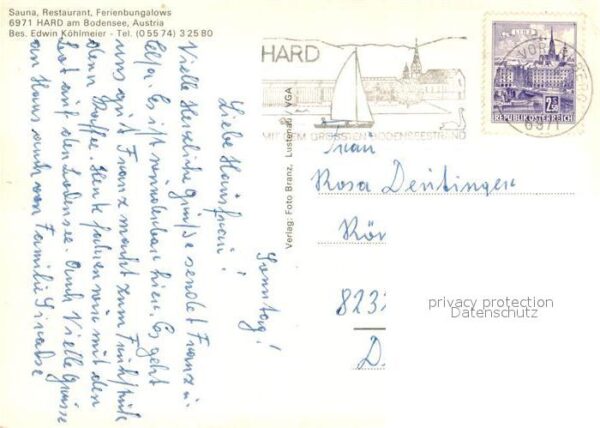 Sauna, Restaurant, Ferienbungalows
6971 HARD am Bodensee, Austria
Bes. Edwin Köhlmeier - Tel. (0 55 74) 3 25 80
Sonntag!
Liebe Hausfrau!
Viele Herzliche Grüße sendet Franz u
Elfa. Es ist wunderbar hier. Es geht
uns gut Franz macht zum Frühstück
denn Kaffee. Heute fahren wir mit den
Boot auf den Bodensee. Auch Viele Grüsse
an Hans auch von Familie
Verlag: Foto Branz, Lustenau VGA
HARD
MIT DEM GRÖSSTEN BODENSEESTRAND
LINZ
2.50
REPUBLIK ÖSTERREICH
VORARLBERG
6971
Frau
Rosa Dentinger
Rön
823
D.
privacy protection
Datenschutz